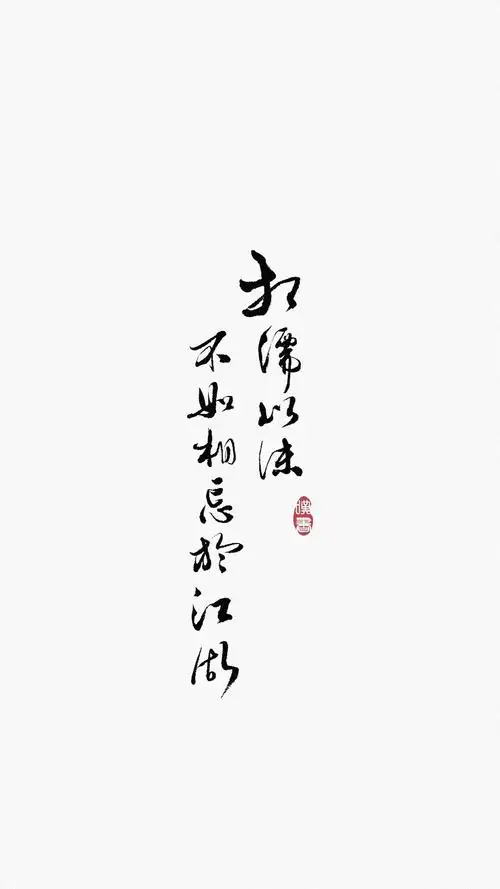 相濡以沫
不如相忘於江湖